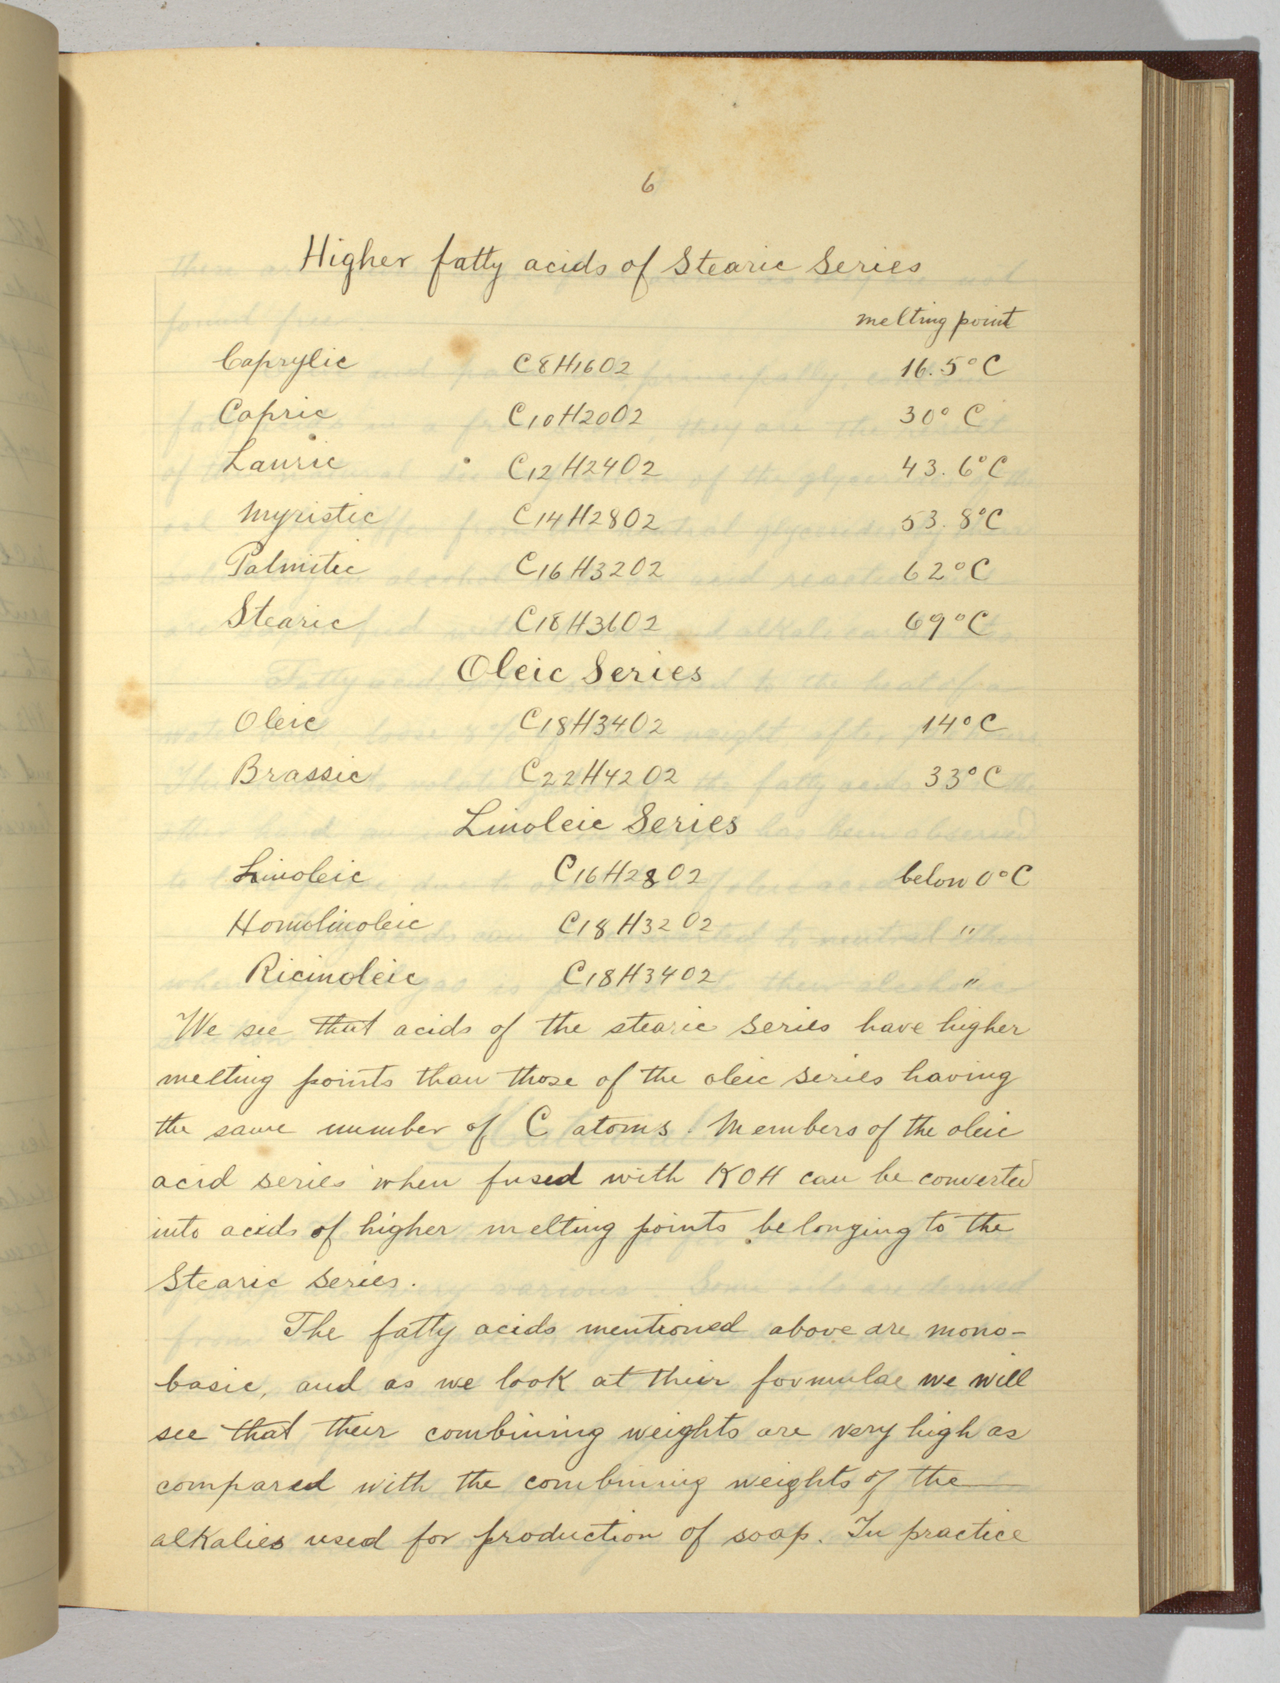 6
Higher fatty acids of Stearic Series
melting point
Caprylic C8H16O2 16.5°C
Capric C10H20O2 30°C
Lauric C12H24O2 43.6°C
Myristic C14H28O2 53.8°C
Palmitic C16H32O2 62°C
Stearic C18H36O2 69°C
Oleic Series
Oleic C18H34O2 14°C
Brassic C22H42O2 33°C
Linoleic Series
Linoleic C16H28O2 below 0°C
Homolinoleic C18H32O2 "
Ricinoleic C18H34O2 "
We see that acids of the stearic series have higher
melting points than those of the oleic series having
the same number of C atoms. Members of the oleic
acid series when fused with KOH can be converted
into acids of higher melting points belonging to the
Stearic series.
The fatty acids mentioned above are mono-
basic, and as we look at their formulae we will
see that their combining weights are very high as
compared with the combining weights of the
alkalies used for production of soap. In practice